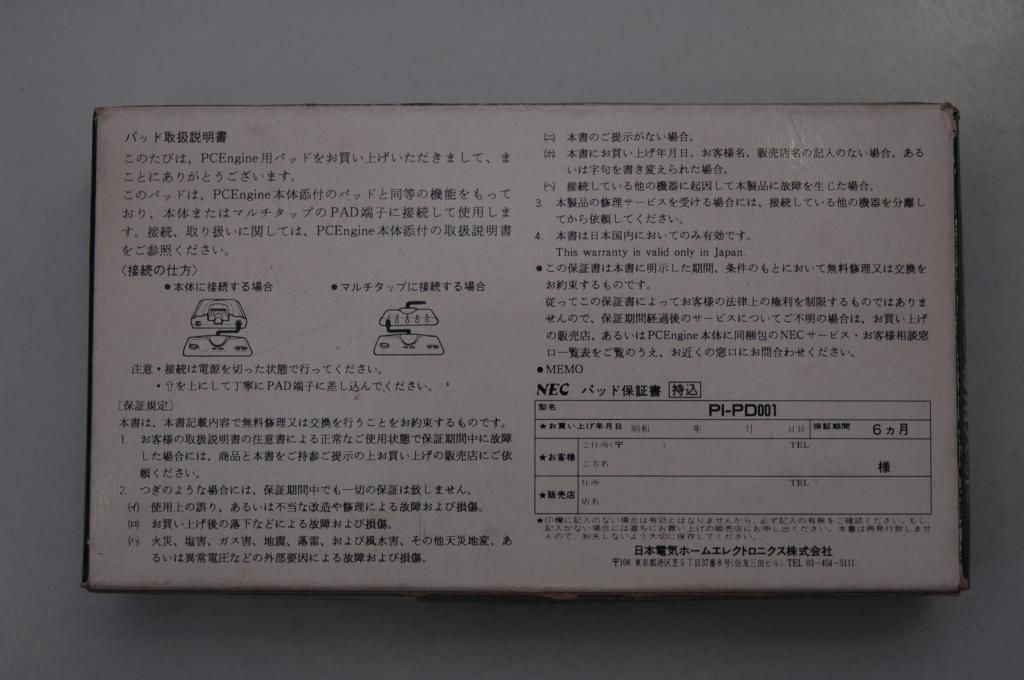 パッド取扱説明書
このたびは、PCEngine用パッドをお買い上げいただきまして、ま
ことにありがとうございます。
このパッドは、PCEngine本体添付のパッドと同等の機能をもって
おり、本体またはマルチタップのPAD端子に接続して使用しま
す。接続、取り扱いに関しては、PCEngine本体添付の取扱説明書
をご参照ください。
〈接続の仕方〉
●本体に接続する場合
●マルチタップに接続する場合
注意・接続は電源を切った状態で行ってください。
・⇧を上にして丁寧にPAD端子に差し込んでください。
〔保証規定〕
本書は、本書記載内容で無料修理又は交換を行うことをお約束するものです。
1. お客様の取扱説明書の注意書による正常なご使用状態で保証期間中に故障
した場合には、商品と本書をご持参ご提示の上お買い上げの販売店にご依
頼ください。
2. つぎのような場合には、保証期間中でも一切の保証は致しません。
(イ) 使用上の誤り、あるいは不当な改造や修理による故障および損傷。
(ロ) お買い上げ後の落下などによる故障および損傷。
(ハ) 火災、塩害、ガス害、地震、落雷、および風水害、その他天災地変、あ
るいは異常電圧などの外部要因による故障および損傷。
(ニ) 本書のご提示がない場合。
(ホ) 本書にお買い上げ年月日、お客様名、販売店名の記入のない場合、ある
いは字句を書き変えられた場合。
(ヘ) 接続している他の機器に起因して本製品に故障を生じた場合。
3. 本製品の修理サービスを受ける場合には、接続している他の機器を分離し
てから依頼してください。
4. 本書は日本国内においてのみ有効です。
This warranty is valid only in Japan.
●この保証書は本書に明示した期間、条件のもとにおいて無料修理又は交換を
お約束するものです。
従ってこの保証書によってお客様の法律上の権利を制限するものではありま
せんので、保証期間経過後のサービスについてご不明の場合は、お買い上げ
の販売店、あるいはPCEngine本体に同梱包のNECサービス・お客様相談窓
口一覧表をご覧のうえ、お近くの窓口にお問合わせください。
●MEMO
NEC パッド保証書 持込
型名 PI-PD001
★お買い上げ年月日 昭和 年 月 日 保証期間 6ヵ月
★お客様 ご住所(〒 ) TEL
ご芳名 様
★販売店 住所 TEL
店名
★印欄に記入のない場合は有効とはなりませんから、必ず記入の有無をご確認ください。もし、
記入がない場合には直ちにお買い上げの販売店にお申し出ください。本書は再発行致しませ
んので、紛失しないよう大切に保存してください。
日本電気ホームエレクトロニクス株式会社
〒108 東京都港区芝5丁目37番8号(住友三田ビル) TEL 03-454-5111